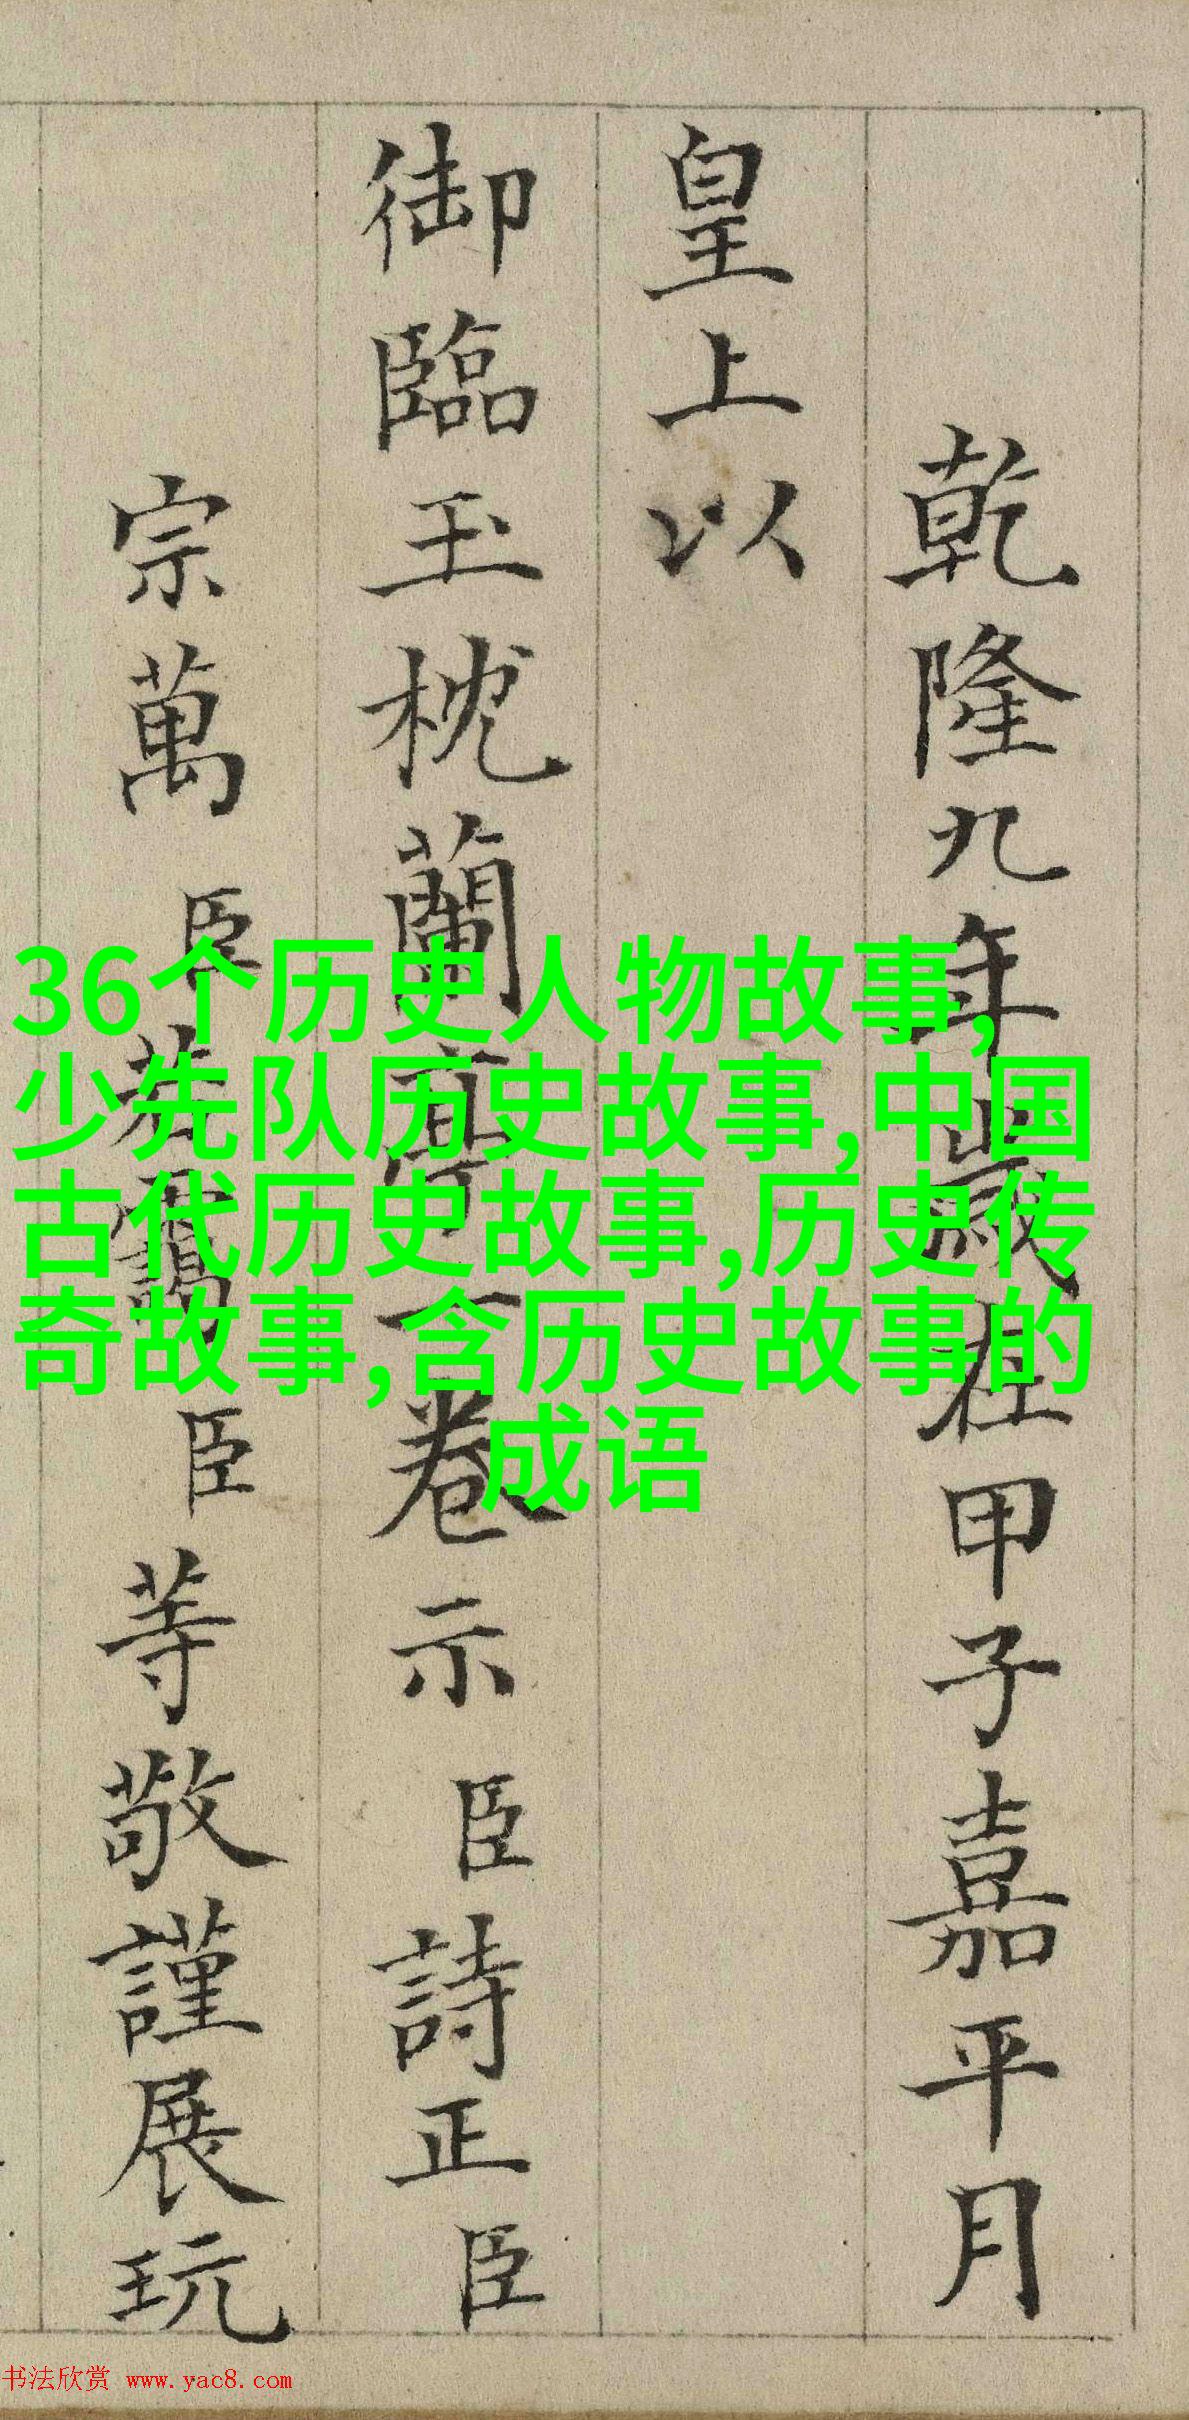 乾隆九年歲在甲子嘉平月
皇上以
御臨玉枕蘭亭一卷示臣詩正臣
宗萬臣若靄臣等敬謹展玩
36个历史人物故事,
少先队历史故事,中国
古代历史故事,历史传
奇故事,含历史故事的
成语
书法欣赏 www.yac8.com